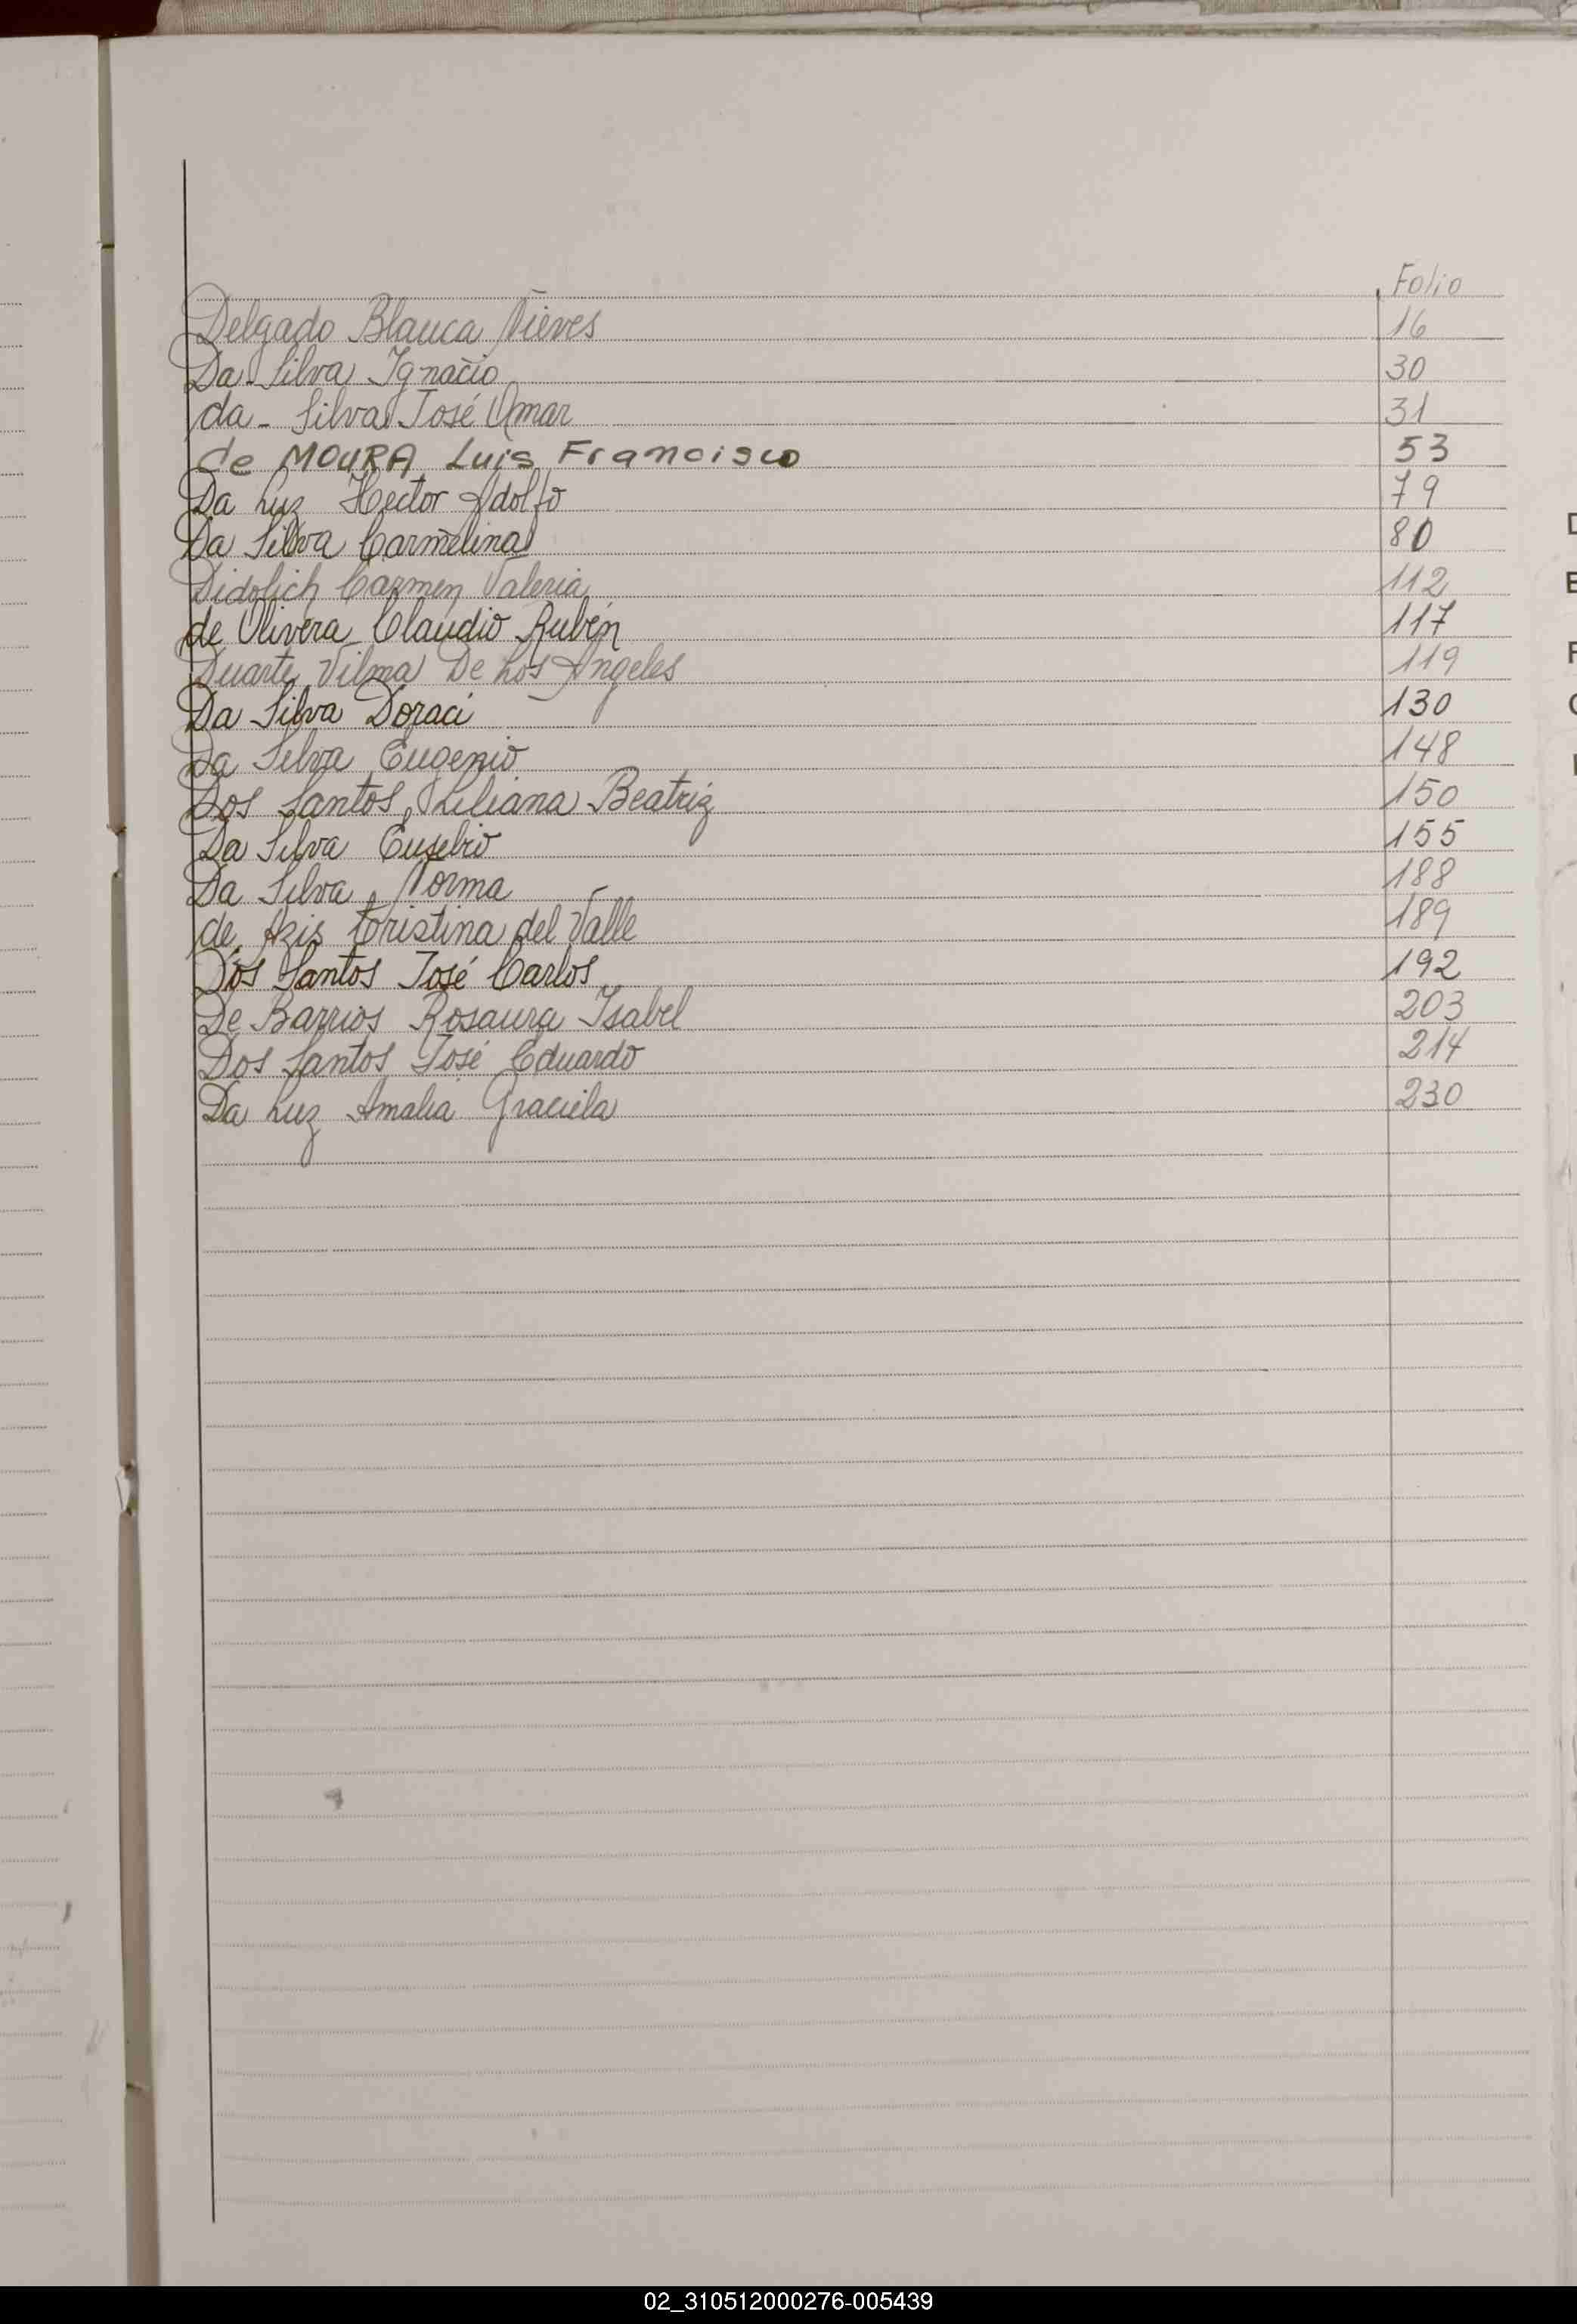 Folio
Delgado Blanca Nieves 16
Da Silva Ignacio 30
da - Silva José Omar 31
de MOURA Luis Francisco 53
Da Luz Hector Adolfo 79
Da Silva Carmelina 80
Didolich Carmen Valeria 112
de Olivera Claudio Rubén 117
Duarte Vilma De Los Angeles 119
Da Silva Doraci 130
Da Silva Eugenio 148
Dos Santos, Liliana Beatriz 150
Da Silva Eusebio 155
Da Silva, Norma 188
de Azis Cristina del Valle 189
Dos Santos José Carlos 192
De Barrios Rosaura Isabel 203
Dos Santos José Eduardo 214
Da Luz Amalia Graciela 230
02_310512000276-005439